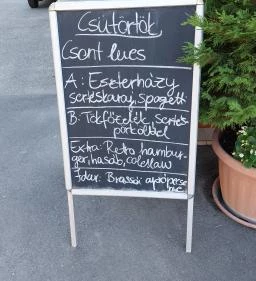 Csütörtök
Csont leves
A: Eszterházy
sertéskaraj, spagetti
B: Tökfőzelék, sertés-
pörkölttel
Extra: Retro hambur-
ger, hasáb, coleslaw
Brassói aprópecse-
nye